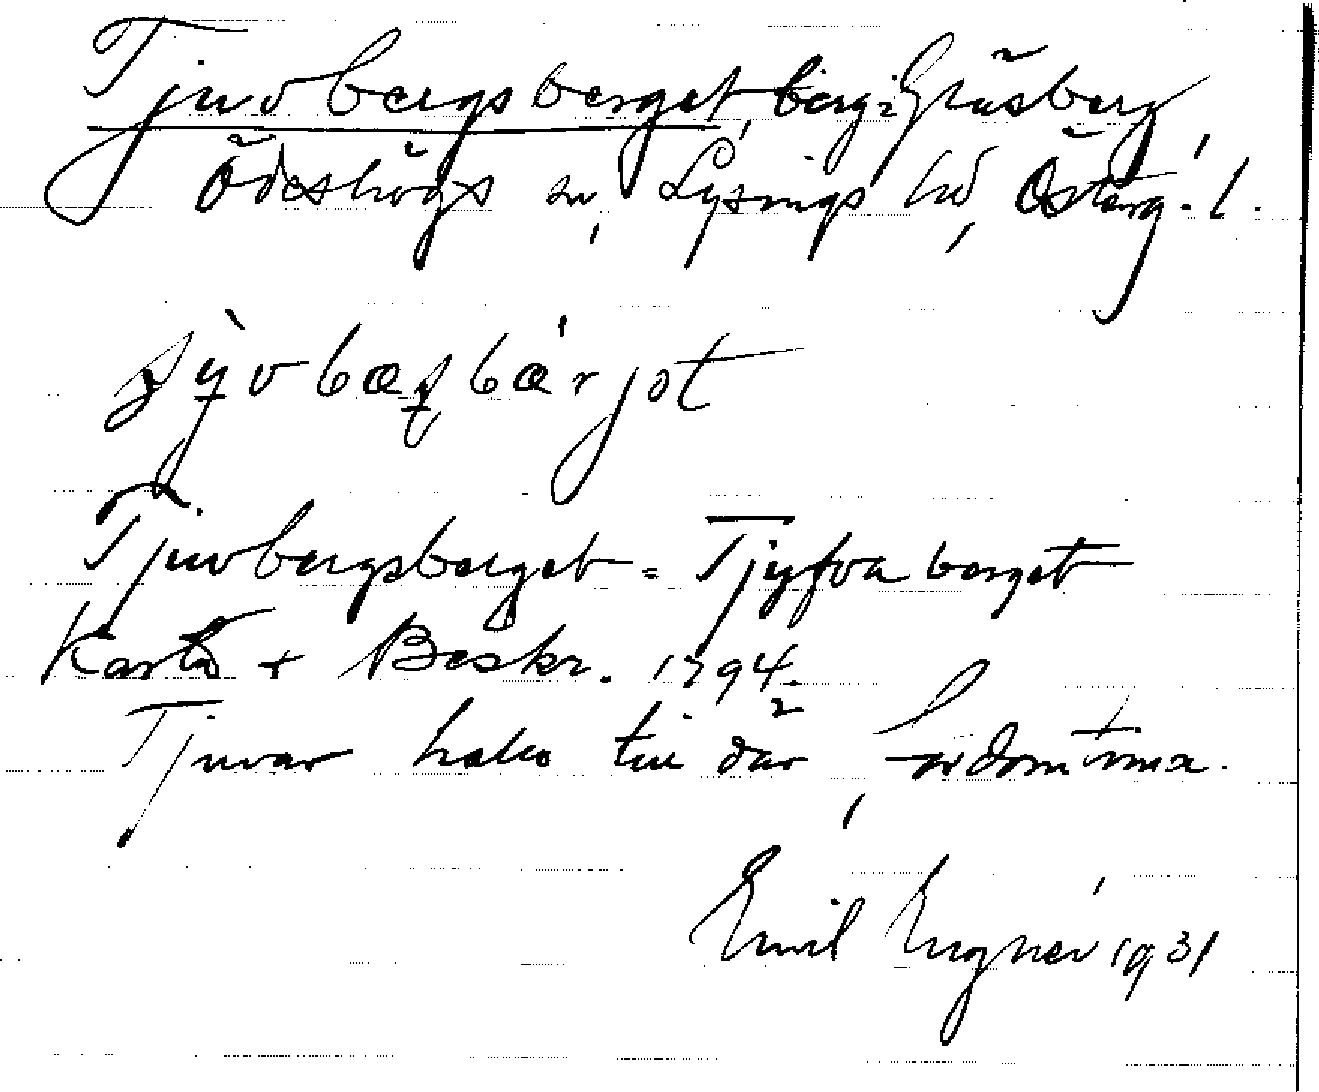 Tjuvbergsberget, berg i Gräsberg
Ödeshögs sn, Lysings hd, Österg. l.
bærjət
Tjuvbergsberget = Tjyfva berget
Karta + Beskr. 1794.
Tjuvar höllo till där, fordomtima.
Emil Engnér 1931